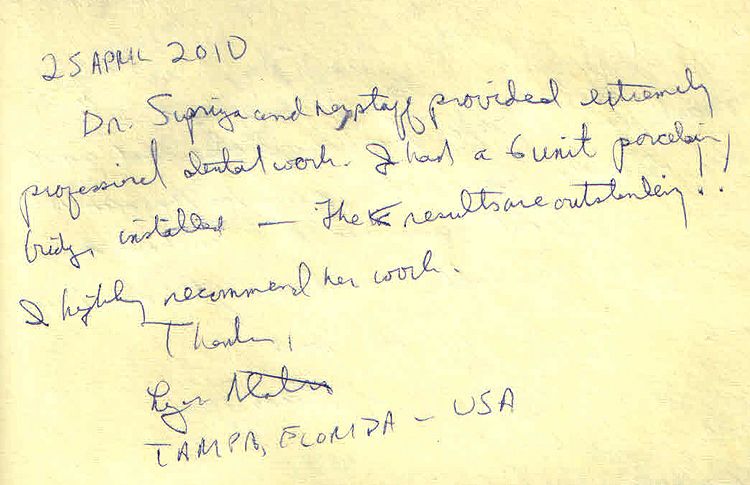 25 APRIL 2010
Dr. Supriya and her staff provided extremely
professional dental work. I had a 6 unit porcelain
bridge installed — The results are outstanding!!
I highly recommend her work.
Thanks,
TAMPA, FLORIDA - USA